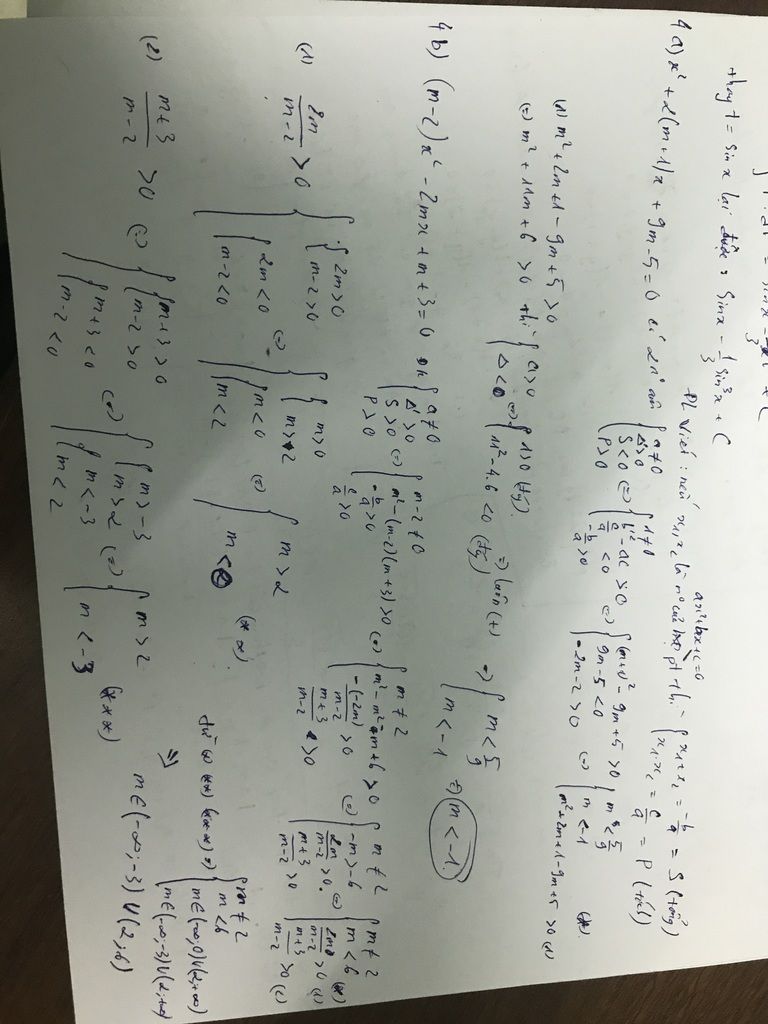 thay t = sinx lại được: sinx - 1/3 sin³x + C
ax²+bx+c=0
ĐL Viet: nếu x₁, x₂ là n° của pt thì { x₁+x₂ = -b/a = S (tổng)
x₁.x₂ = c/a = P (tích)
4 a) x² + 2(m+1)x + 9m-5=0 có 2 n° âm { a≠0
Δ'>0
S<0
P>0
(=) { 1≠0
b'² - ac >0
(=) { (m+1)² - 9m+5 >0
9m-5 <0
-2m-2 >0
(=) { m < 5/9
m < -1
m²+2m+1-9m+5 >0 (1)
(*).
(1) m²+2m+1 - 9m+5 >0
(=) m² + 11m + 6 >0 thì { a>0
Δ<0
(=) { 1>0 (tg).
11²-4.6 <0 (tg)
=) luôn (+) =) { m < 5/9
m < -1
=) m < -1.
4 b) (m-2)x² - 2mx + m+3=0 { a≠0
Δ'>0
S>0
P>0
(=) { m-2≠0
m²-(m-2)(m+3)>0
-b/a >0
c/a >0
(=) { m≠2
m²-m²-m+6 >0
-(-2m)/(m-2) >0
(m+3)/(m-2) >0
(=) { m≠2
-m>-6
2m/(m-2) >0.
(m+3)/(m-2) >0
(=) { m≠2
m<6 (*)
2m/(m-2) >0 (1)
(m+3)/(m-2) >0 (2)
(1) 2m/(m-2) >0 { 2m>0
m-2>0
{ 2m<0
m-2<0
(=) { m>0
m>2
{ m<0
m<2
(=) { m>2
m<0
(**).
(2) (m+3)/(m-2) >0 (=) { m+3>0
m-2>0
{ m+3<0
m-2<0
(=) { m>-3
m>2
{ m<-3
m<2
(=) { m>2
m<-3
(***)
từ (*) (**) (***) =) { m≠2
m<6
m∈(-∞;0)U(2;+∞)
m∈(-∞;-3)U(2;+∞)
=> m∈(-∞;-3)U(2;6)